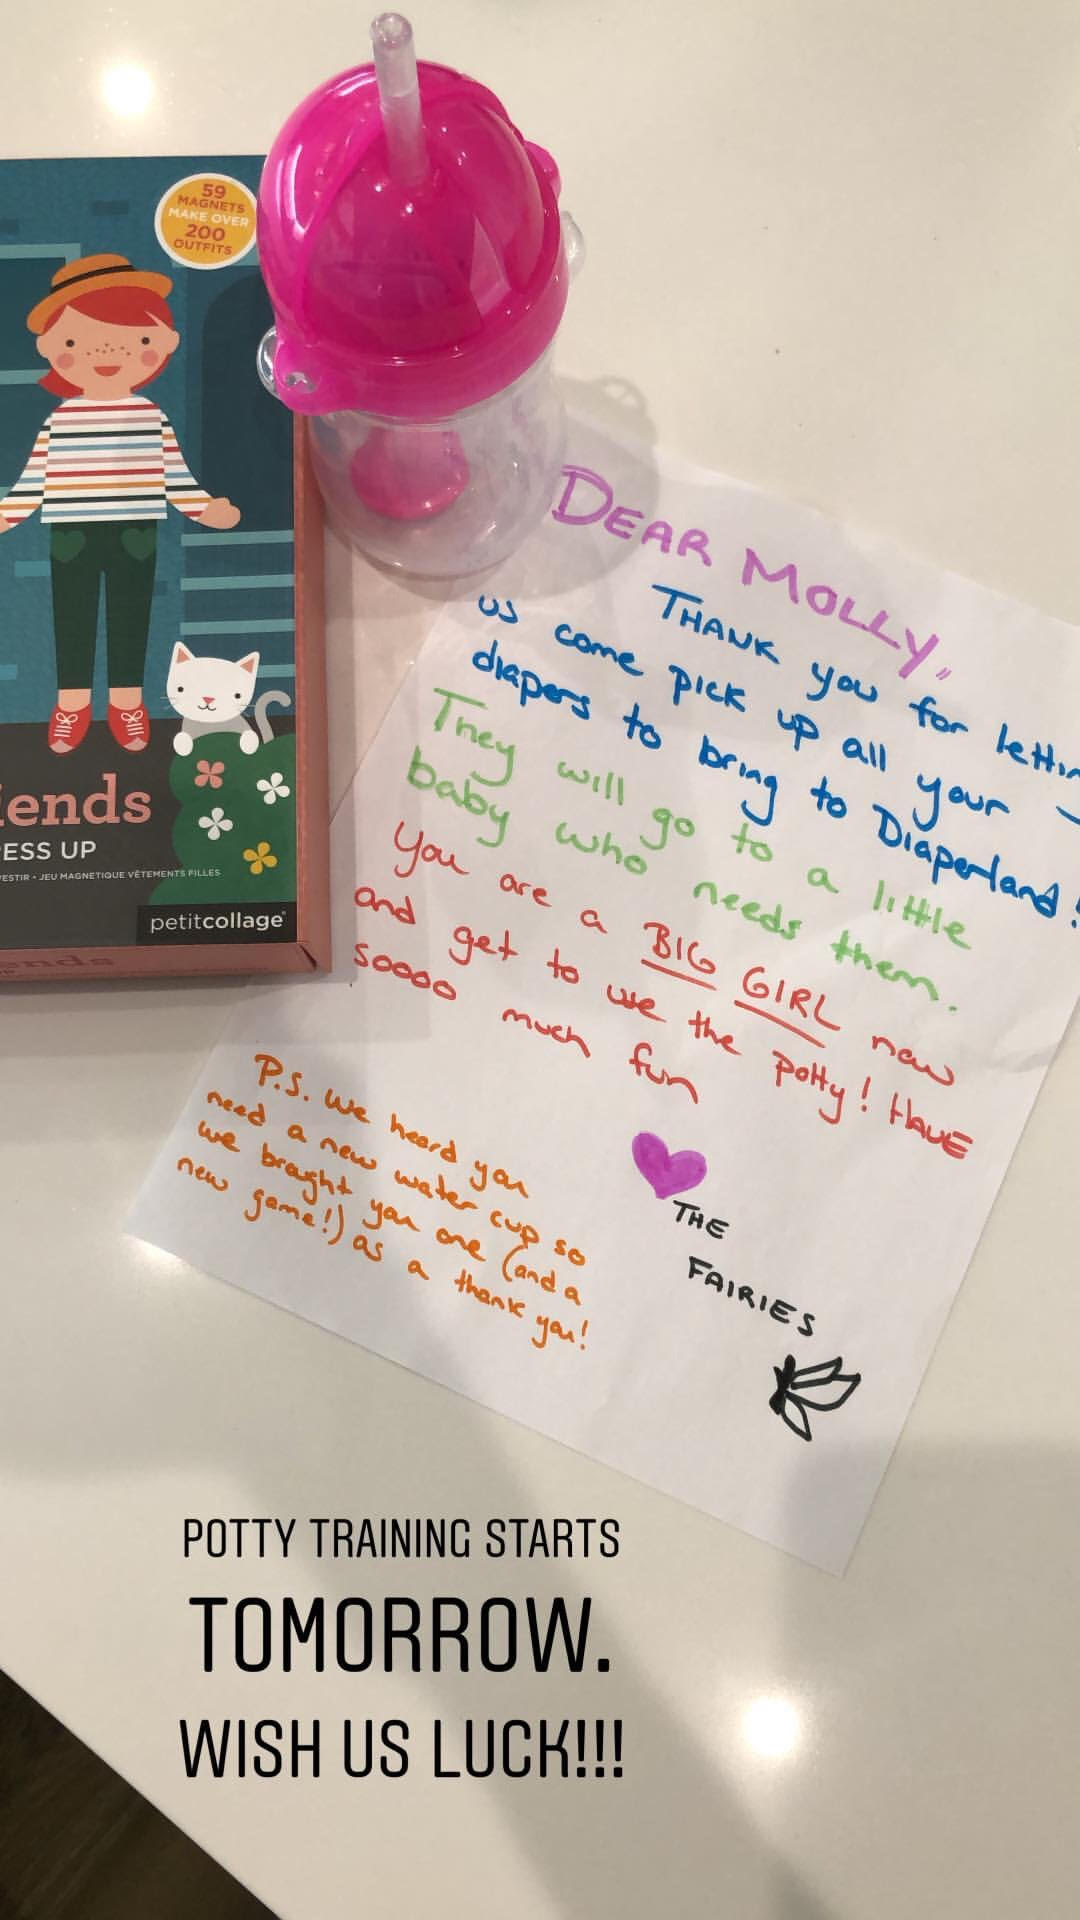 59
MAGNETS
MAKE OVER
200
OUTFITS
iends
ESS UP
ESTIR • JEU MAGNETIQUE VÊTEMENTS FILLES
petitcollage
ends
DEAR MOLLY,
THANK you for
us come pick up all your
diapers to bring to Diaperland!
They will go to a little
baby who needs them.
You are a BIG GIRL now
and get to use the potty! HAVE
soooo much fun
THE
FAIRIES
P.S. We heard you
need a new water cup so
we brought you one (and a
new game!) as a thank you!
POTTY TRAINING STARTS
TOMORROW.
WISH US LUCK!!!